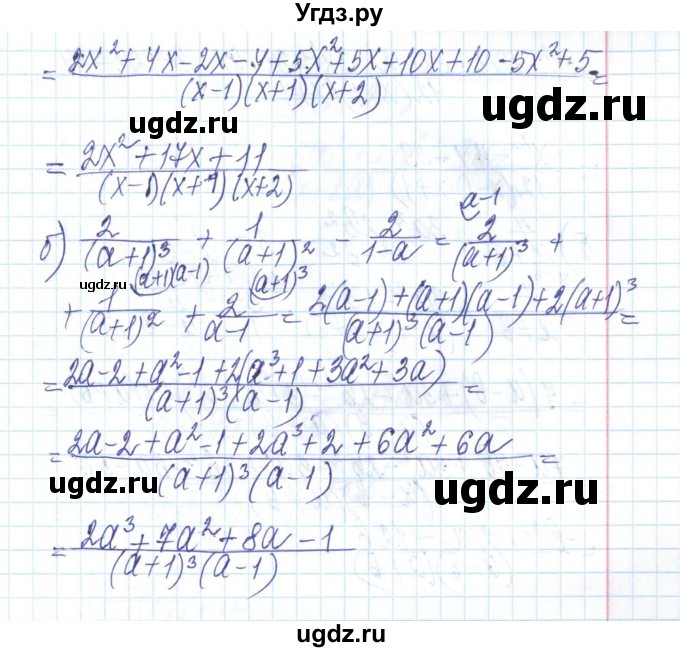 Угдз.ру
= (2x² + 4x - 2x - 4 + 5x² + 5x + 10x + 10 - 5x² + 5) / ((x-1)(x+1)(x+2)) =
ugdz.ru
ugdz.ru
= (2x² + 17x + 11) / ((x-1)(x+1)(x+2))
б) 2/(a+1)³ + 1/(a+1)² - 2/(1-a) = 2/(a+1)³ (a-1 +
ugdz.ru
+ 1/(a+1)² (a+1)(a-1) + 2/(a-1) (a+1)³ = (2(a-1) + (a+1)(a-1) + 2(a+1)³) / ((a+1)³(a-1)) =
= (2a - 2 + a² - 1 + 2(a³ + 1 + 3a² + 3a)) / ((a+1)³(a-1)) =
= (2a - 2 + a² - 1 + 2a³ + 2 + 6a² + 6a) / ((a+1)³(a-1)) =
ugdz.ru
ugdz.ru
= (2a³ + 7a² + 8a - 1) / ((a+1)³(a-1))
ugdz.ru
ugdz.ru